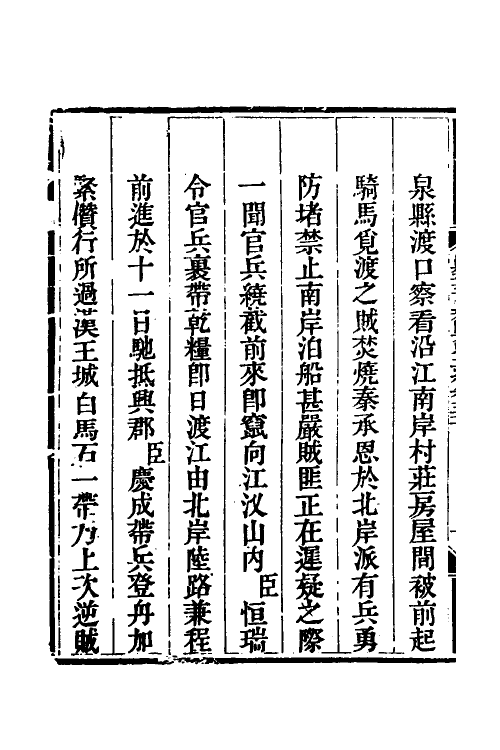 泉縣渡口察看沿江南岸村莊房屋間被前起
騎馬覓渡之賊焚燒秦承恩於北岸派有兵勇
防堵禁止南岸泊船甚嚴賊匪正在遲疑之際
一聞官兵繞截前來卽竄向江汊山內臣恒瑞
令官兵裹帶乾糧卽日渡江由北岸陸路兼程
前進於十一日馳抵興郡臣慶成帶兵登舟加
緊儹行所過漢王城白馬石一帶乃上次逆賊